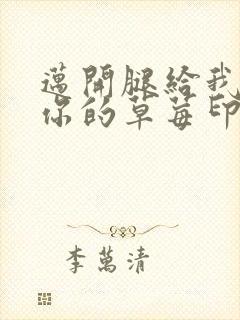 邁開腿給我
你的草莓印
李萬清